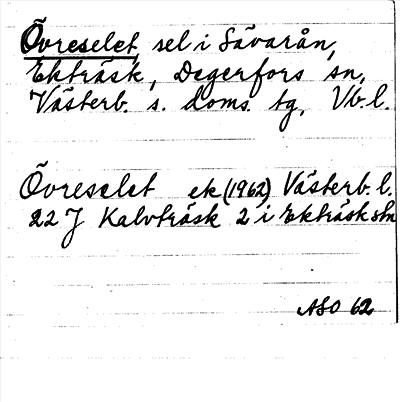 Övreselet, sel i Sävarån,
Ekträsk, Degerfors sn,
Västerb. s. doms. tg, Vb. l.
Övreselet ek (1962) Västerb. l.
22 J Kalvträsk 2 i Ekträsk sbn
ASO 62